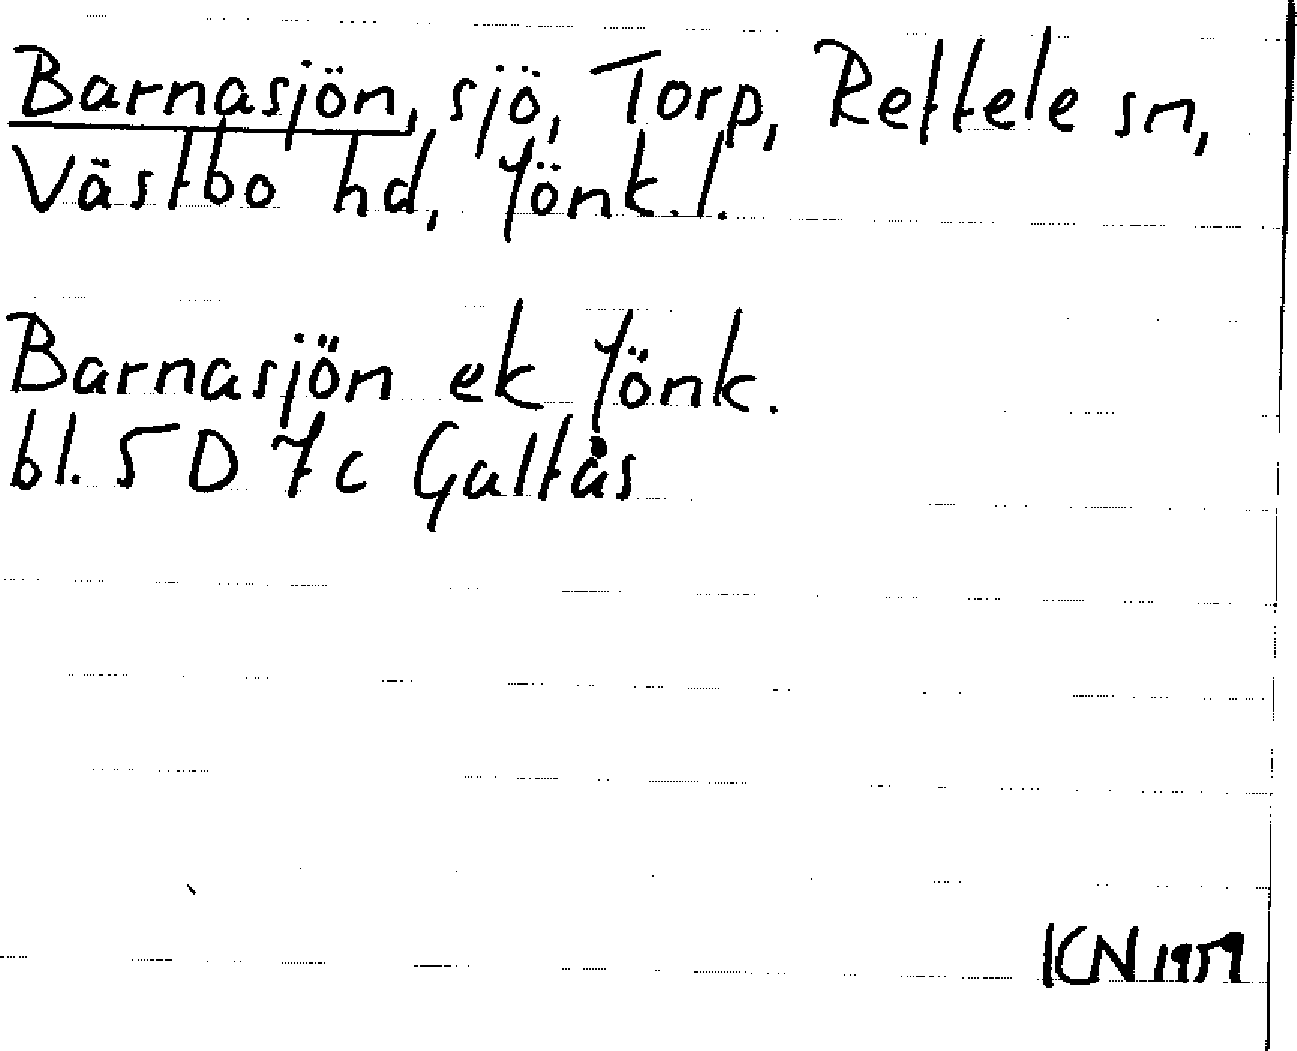 Barnasjön, sjö, Torp, Reftele sn,
Västbo hd, Jönk. l.
Barnasjön ek Jönk.
bl. 5 D 7c Galtås
KN 1959